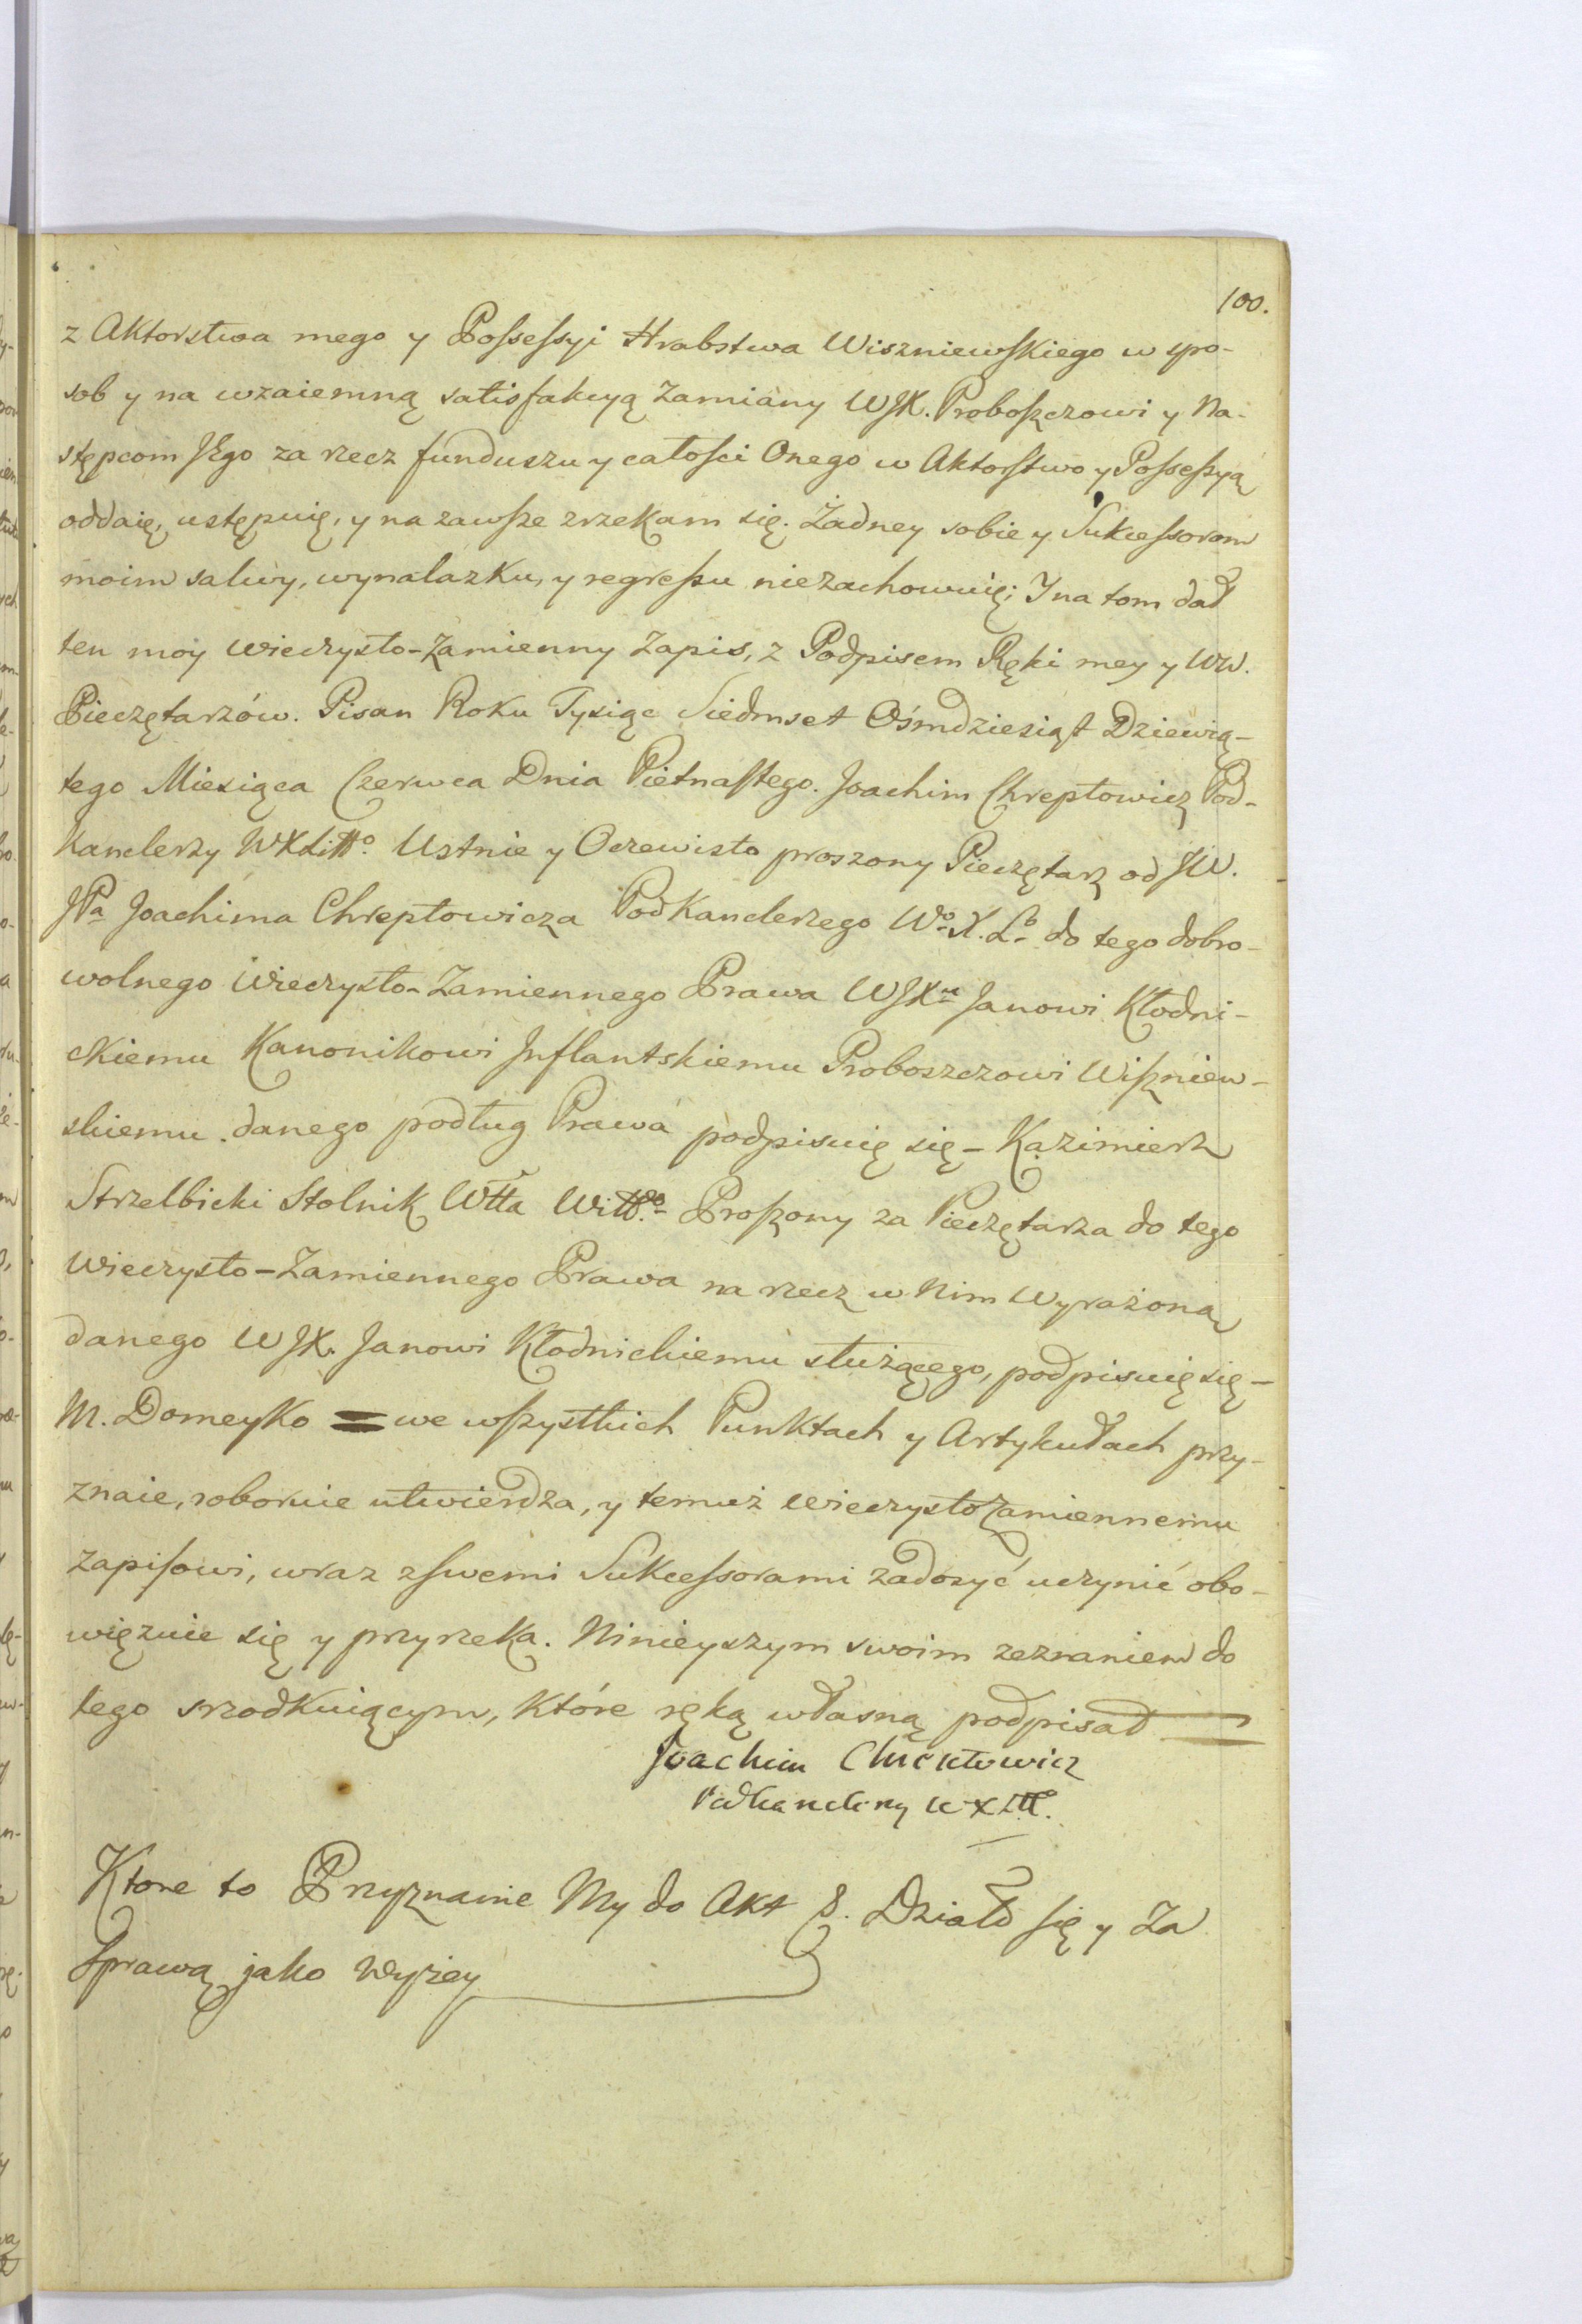 100.
z Aktorstwa mego y Possessyi Hrabstwa Wiszniewskiego w spo-
sob y na wzaiemną satisfakcyą Zamiany WJX. Proboszczowi y Na-
stępcom JEgo za rzecz funduszu y całosci Onego w Aktorstwo y Possessyą
oddaię, ustępuię, y na zawsze zrzekam się. Żadney sobie y Sukcessorom
moim salwy, wynalazku, y regressu niezachowuię; J na tom dał
ten moy wieczysto-Zamienny Zapis, z Podpisem Ręki mey y WW.
Pieczętarzów. Pisan Roku Tysiąc Siedmset Ośmdziesiąt Dziewią-
tego Miesiąca Czerwca Dnia Pietnastego. Joachim Chreptowicz Pod-
kanclerzy WXLitto. Ustnie y Oczewisto proszony Pieczętarz od JW.
JPa Joachima Chreptowicza Podkanclerzego Wo. X. Lo. do tego dobro-
wolnego Wieczysto-Zamiennego Prawa WJXu Janowi Kłodni-
ckiemu Kanonikowi Jnflantskiemu Proboszczowi Wiszniew-
skiemu danego podług Prawa podpisuię się - Kazimierz
Strzelbicki Stolnik Wttа Witt.o Proszony za Pieczętarza do tego
Wieczysto-Zamiennego Prawa na rzecz w Nim Wyrażoną
danego WJX. Janowi Kłodnickiemu służącego, podpisuię się -
M. Domeyko = we wszystkich Punktach y Artykułach przy-
znaie, roboruie utwierdza, y temuż wieczysto Zamiennemu
Zapisowi, wraz z swemi Sukcessorami zadosyć uczynić obo-
więzuie się y przyrzeka. Ninieyszym swoim zeznaniem do
tego srzodkuiącym, które ręką własną podpisał
Joachim Chreptowicz
Podkanclerzy WXLitt.
Ktore to Przyznanie My do Akt &. Działo się y Za
Sprawą jako Wyżey